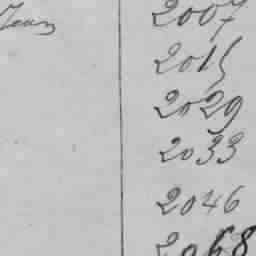 Jean 2007
2015
2029
2033
2046
2068